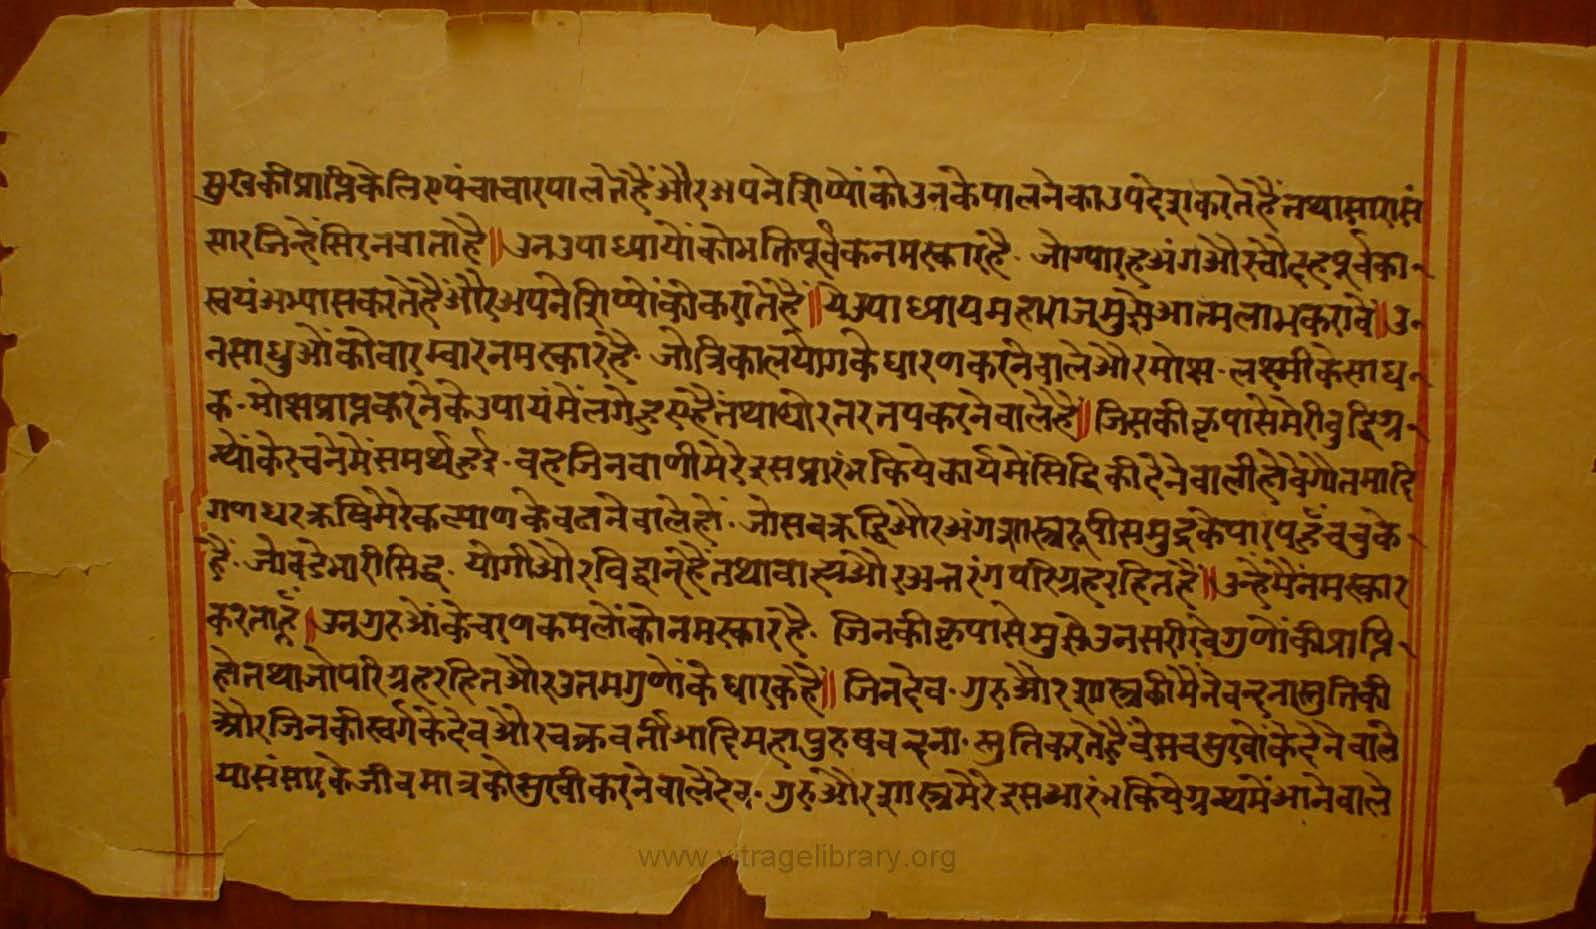 सुखकीप्राप्तिकेलिएपंचाचारपालतेहैंऔरअपनेशिष्योंकोउनकेपालनेकाउपदेशकरतेहैंतथासारासं
सारजिन्हेंसिरनवाताहै॥उनउपाध्यायोंकोभक्तिपूर्वकनमस्कारहै·जोग्यारहअंगऔरचौदहपूर्वका-
स्वयंअभ्यासकरतेहैंऔरअपनेशिष्योंकोकरातेहैं॥येउपाध्यायमहाराजमुझेआत्मलाभकरावें॥उ-
नसाधुओंकोवारम्वारनमस्कारहै·जोत्रिकालयोगकेधारणकरनेवालेऔरमोक्ष-लक्ष्मीकेसाध-
क·मोक्षप्राप्तकरनेकेउपायमेंलगेहुएहैंतथाघोरतरतपकरनेवालेहैं॥जिसकीकृपासेमेरीवुद्धिग्र-
न्थोंकेरचनेमेंसमर्थहुई·वहजिनवाणीमेरेइसप्रारंभकियेकार्यमेंसिद्धिकीदेनेवालीहोवेवेगौतमादि
गणधरऋषिमेरेकल्याणकेवतानेवालेहों·जोसवऋद्धिऔरअंगशास्त्ररूपीसमुद्रकेपारपहुँचचुके
हैं·जोवडेभारीसिद्ध·योगीऔरविद्वानहैंतथावाह्यऔरअन्तरंगपरिग्रहरहितहैं॥उन्हेंमैंनमस्कार
करताहूँ॥उनगुरुओंकेचरणकमलोंकोनमस्कारहै·जिनकीकृपासेमुझेउनसरीखेगुणोंकीप्राप्ति-
होतथाजोपरिग्रहरहितऔरउतमगुणोंकेधारकहैं॥जिनदेव·गुरुऔरशास्त्रकीमैंनेवन्दनास्तुतिकी
औरजिनकीस्वर्गकेदेवऔरचक्रवर्तीआदिमहापुरुषवन्दना·स्तुतिकरतेहैंवेसवसुखोंकेदेनेवाले
यासंसारकेजीवमात्रकोसुखीकरनेवालेदेव·गुरुऔरशास्त्रमेरेइसप्रारंभकियेग्रन्थमेंआनेवाले
www.vitragelibrary.org